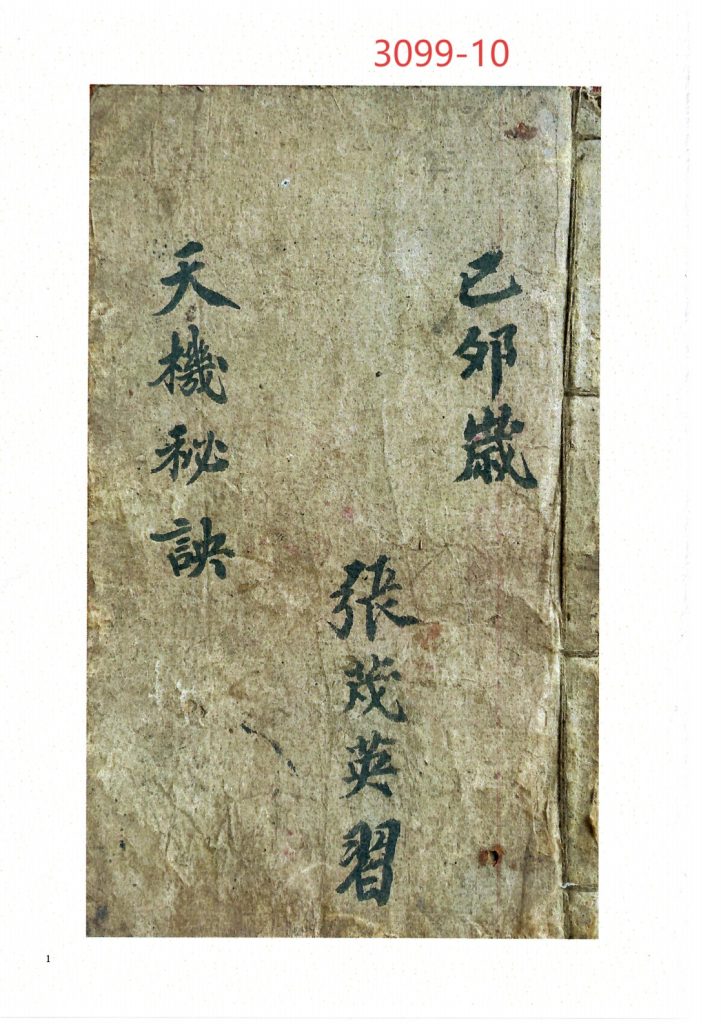 3099-10
己卯歲
張茂英習
天機秘訣
1